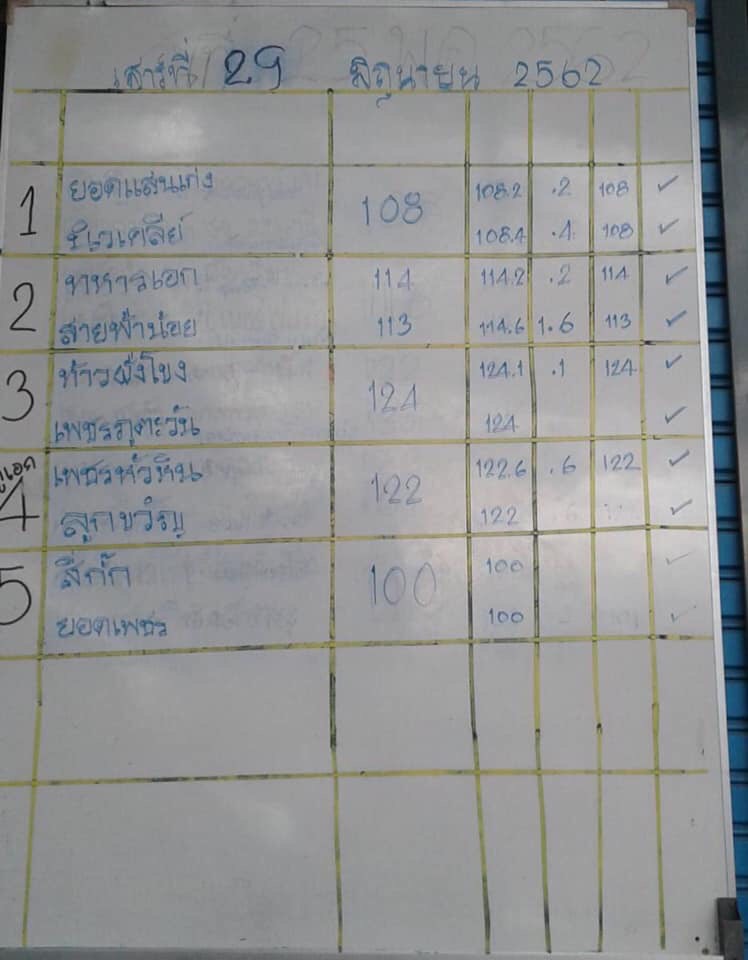 เสาร์ที่ 29 มิถุนายน 2562
1
ยอดแสนเก่ง 108 108.2 .2 108 ✓
108.4 .4 108 ✓
2
ทหารเอก 114 114.2 .2 114 ✓
สายฟ้าน้อย 113 114.6 1.6 113 ✓
3
ท้าวฝั่งโขง 124 124.1 .1 124 ✓
เพชรภูตะวัน 124 ✓
คู่เอก
4
เพชรหัวหิน 122 122.6 .6 122 ✓
ลูกขวัญ 122 ✓
5
สีกั๊ก 100 100 ✓
ยอดเพชร 100 ✓